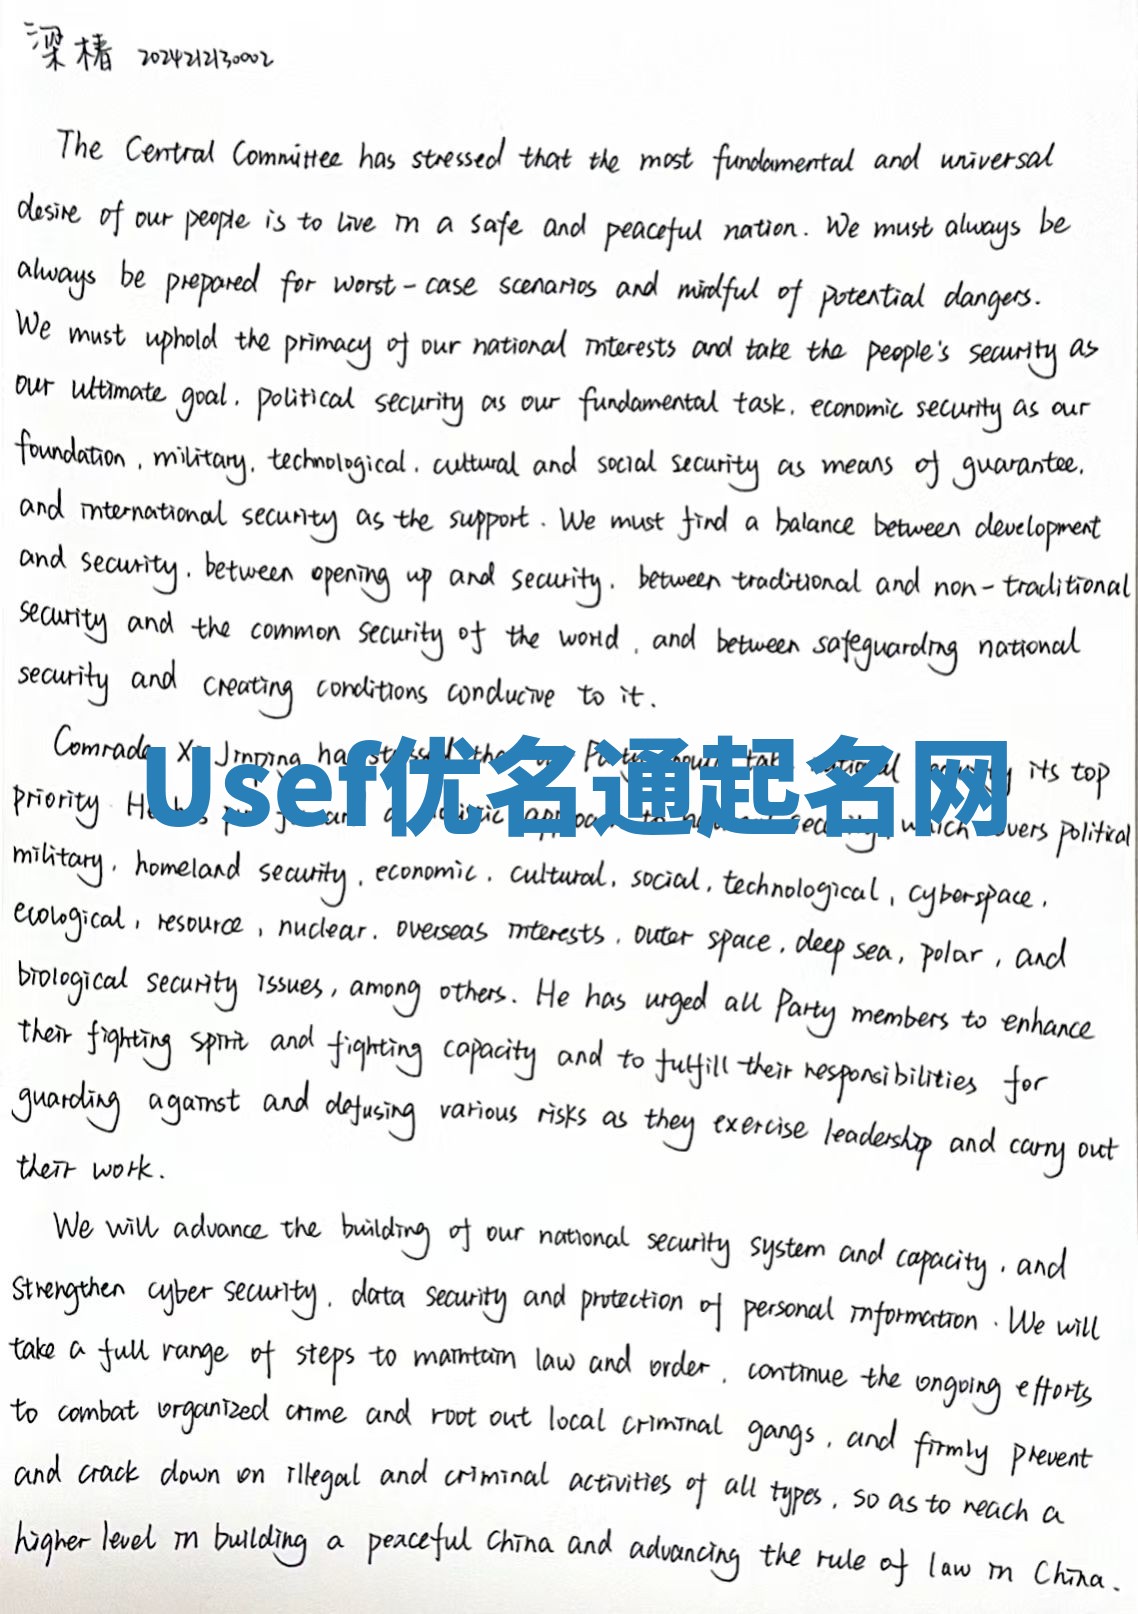 梁椿 2024212130002
The Central Committee has stressed that the most fundamental and universal
desire of our people is to live in a safe and peaceful nation. We must always be
always be prepared for worst-case scenarios and mindful of potential dangers.
We must uphold the primacy of our national interests and take the people's security as
our ultimate goal, political security as our fundamental task, economic security as our
foundation, military, technological, cultural and social security as means of guarantee,
and international security as the support. We must find a balance between development
and security, between opening up and security, between traditional and non-traditional
security and the common security of the world, and between safeguarding national
security and creating conditions conducive to it.
Comrade Xi Jinping has stressed its top
Usef优名通起名网
priority which political
military, homeland security, economic, cultural, social, technological, cyberspace,
ecological, resource, nuclear, overseas interests, outer space, deep sea, polar, and
biological security issues, among others. He has urged all Party members to enhance
their fighting spirit and fighting capacity and to fulfill their responsibilities for
guarding against and defusing various risks as they exercise leadership and carry out
their work.
We will advance the building of our national security system and capacity, and
strengthen cyber security, data security and protection of personal information. We will
take a full range of steps to maintain law and order, continue the ongoing efforts
to combat organized crime and root out local criminal gangs, and firmly prevent
and crack down on illegal and criminal activities of all types, so as to reach a
higher level in building a peaceful China and advancing the rule of law in China.